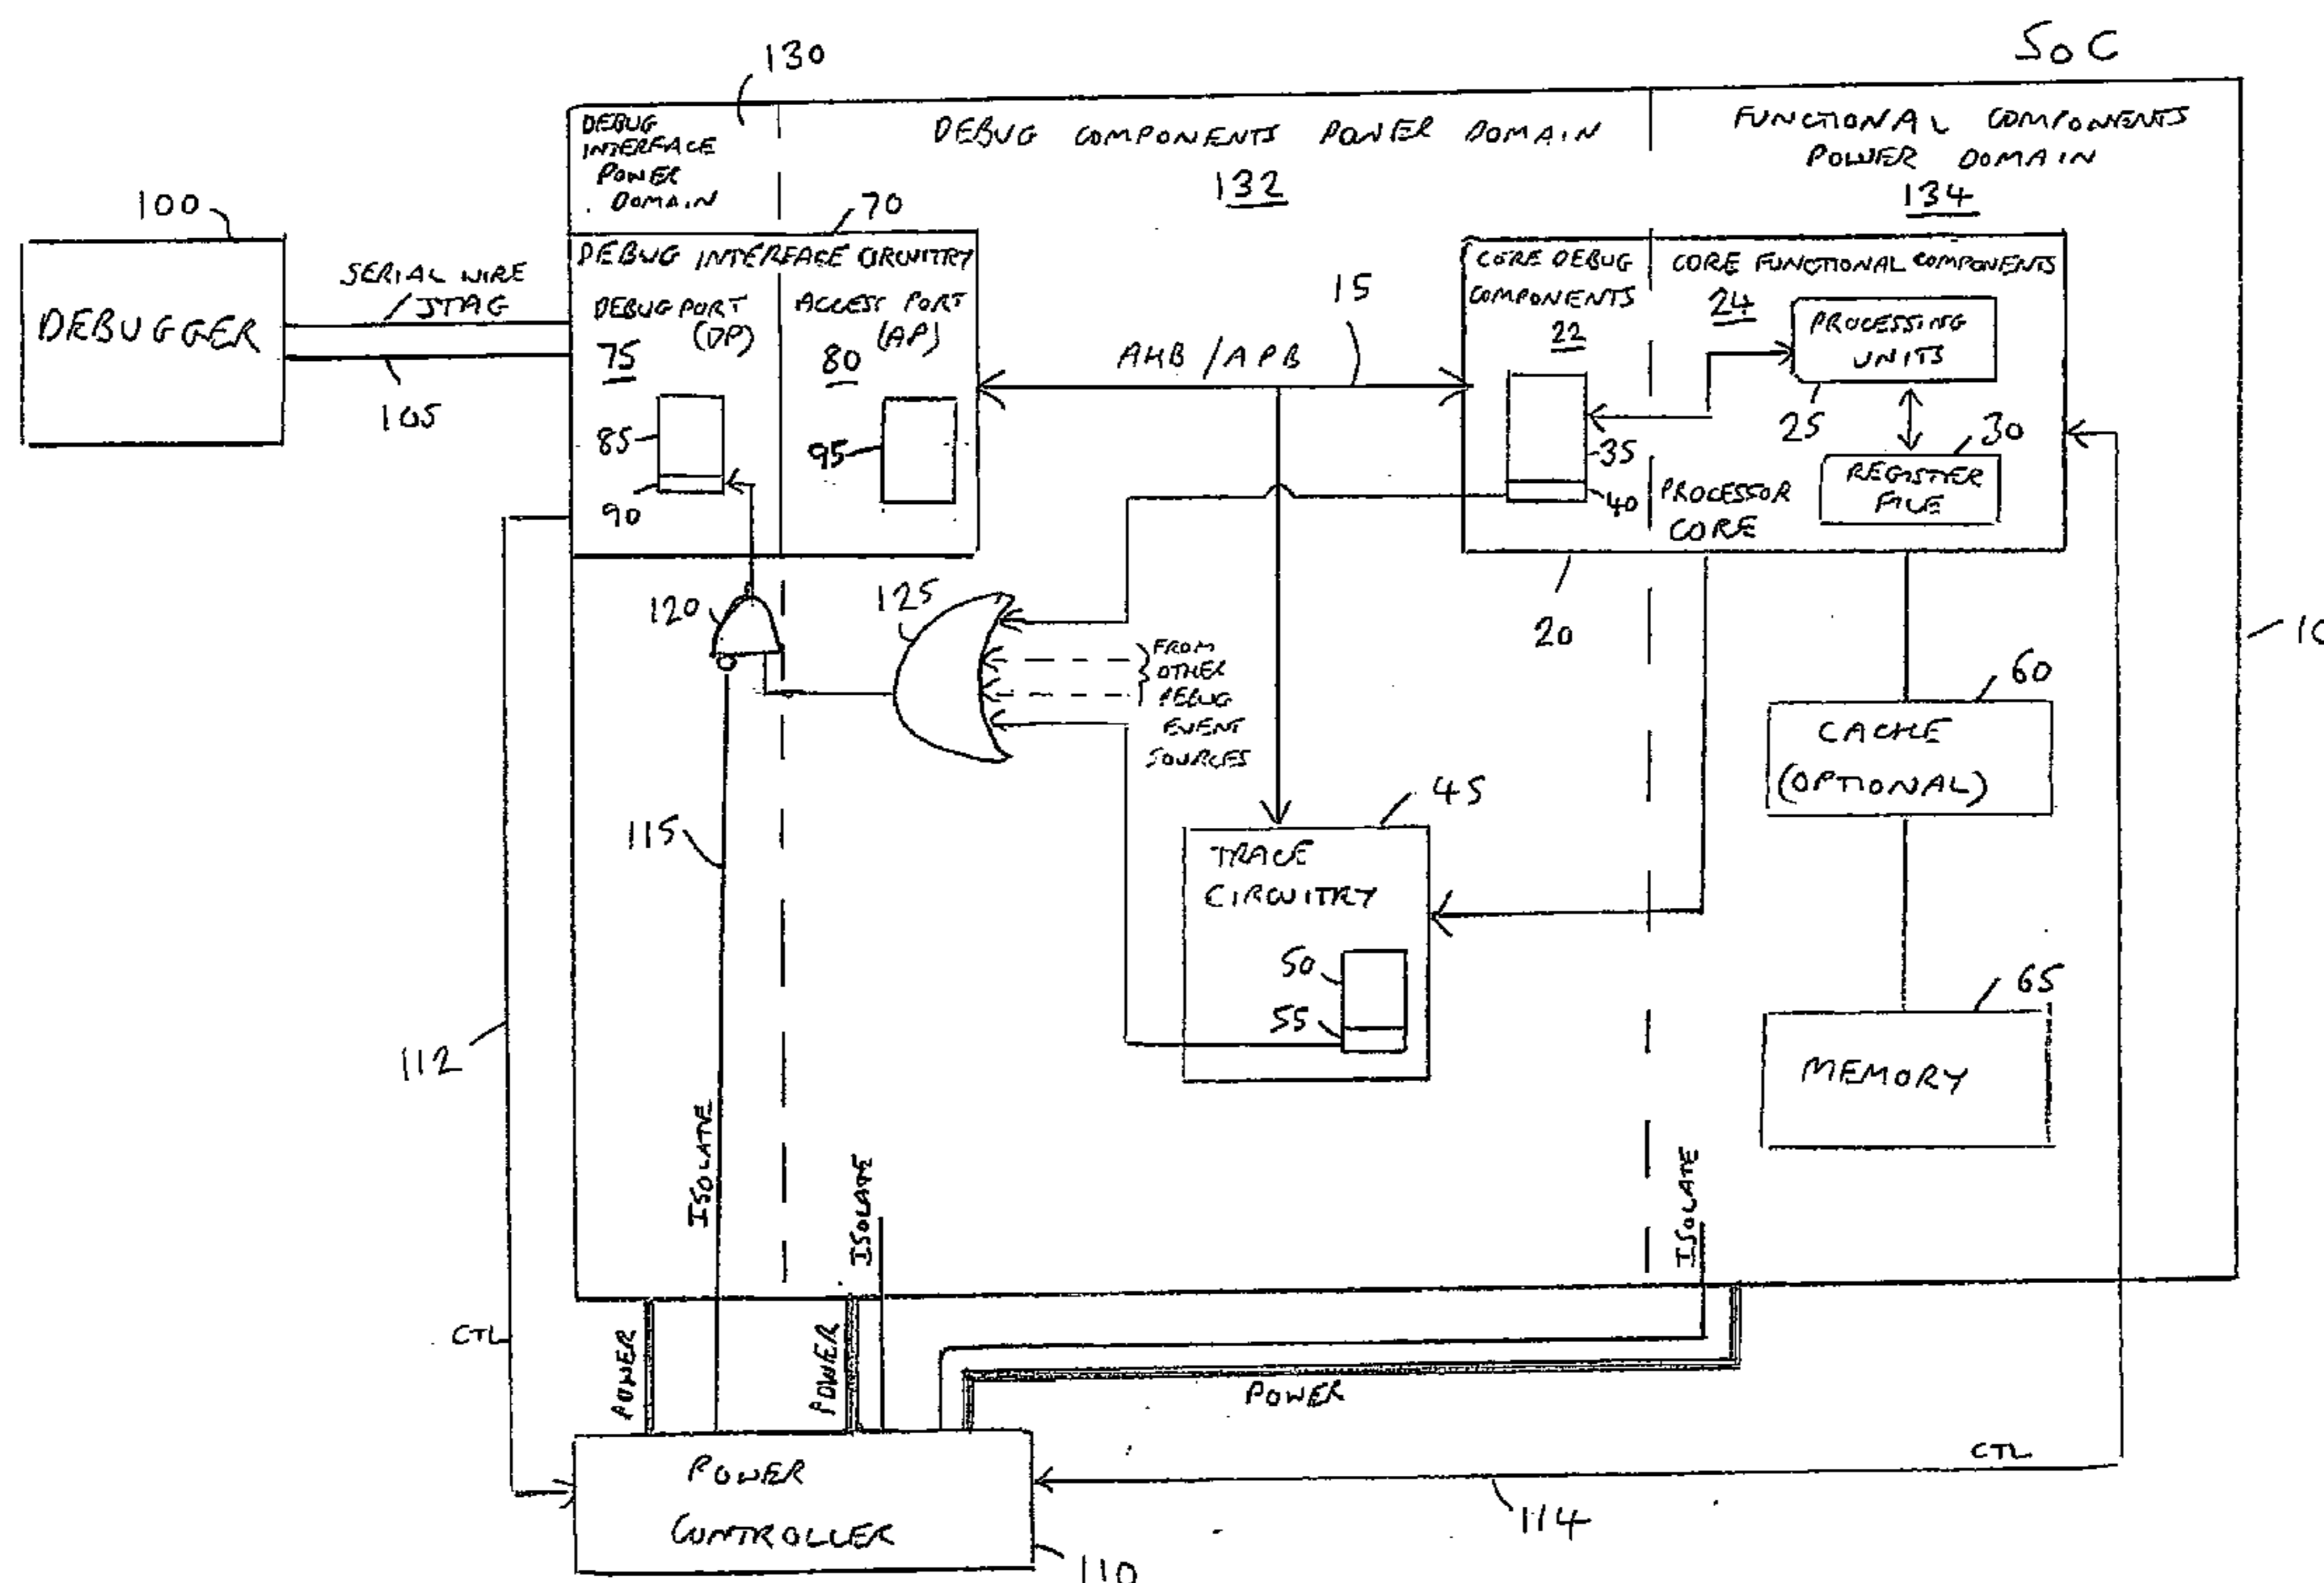 SoC
130
DEBUG
INTERFACE
POWER
DOMAIN
DEBUG COMPONENTS POWER DOMAIN
132
FUNCTIONAL COMPONENTS
POWER DOMAIN
134
100
DEBUGGER
SERIAL WIRE
/JTAG
105
70
DEBUG INTERFACE CIRCUITRY
DEBUG PORT
(DP)
75
85
90
ACCESS PORT
(AP)
80
95
AHB/APB
15
CORE DEBUG
COMPONENTS
22
35
40
CORE FUNCTIONAL COMPONENTS
24
PROCESSING
UNITS
25
30
REGISTER
FILE
PROCESSOR
CORE
20
10
120
125
FROM
OTHER
DEBUG
EVENT
SOURCES
60
CACHE
(OPTIONAL)
115
45
TRACE
CIRCUITRY
50
55
65
MEMORY
112
ISOLATE
ISOLATE
ISOLATE
CTL
POWER
POWER
POWER
CTL
POWER
CONTROLLER
110
114